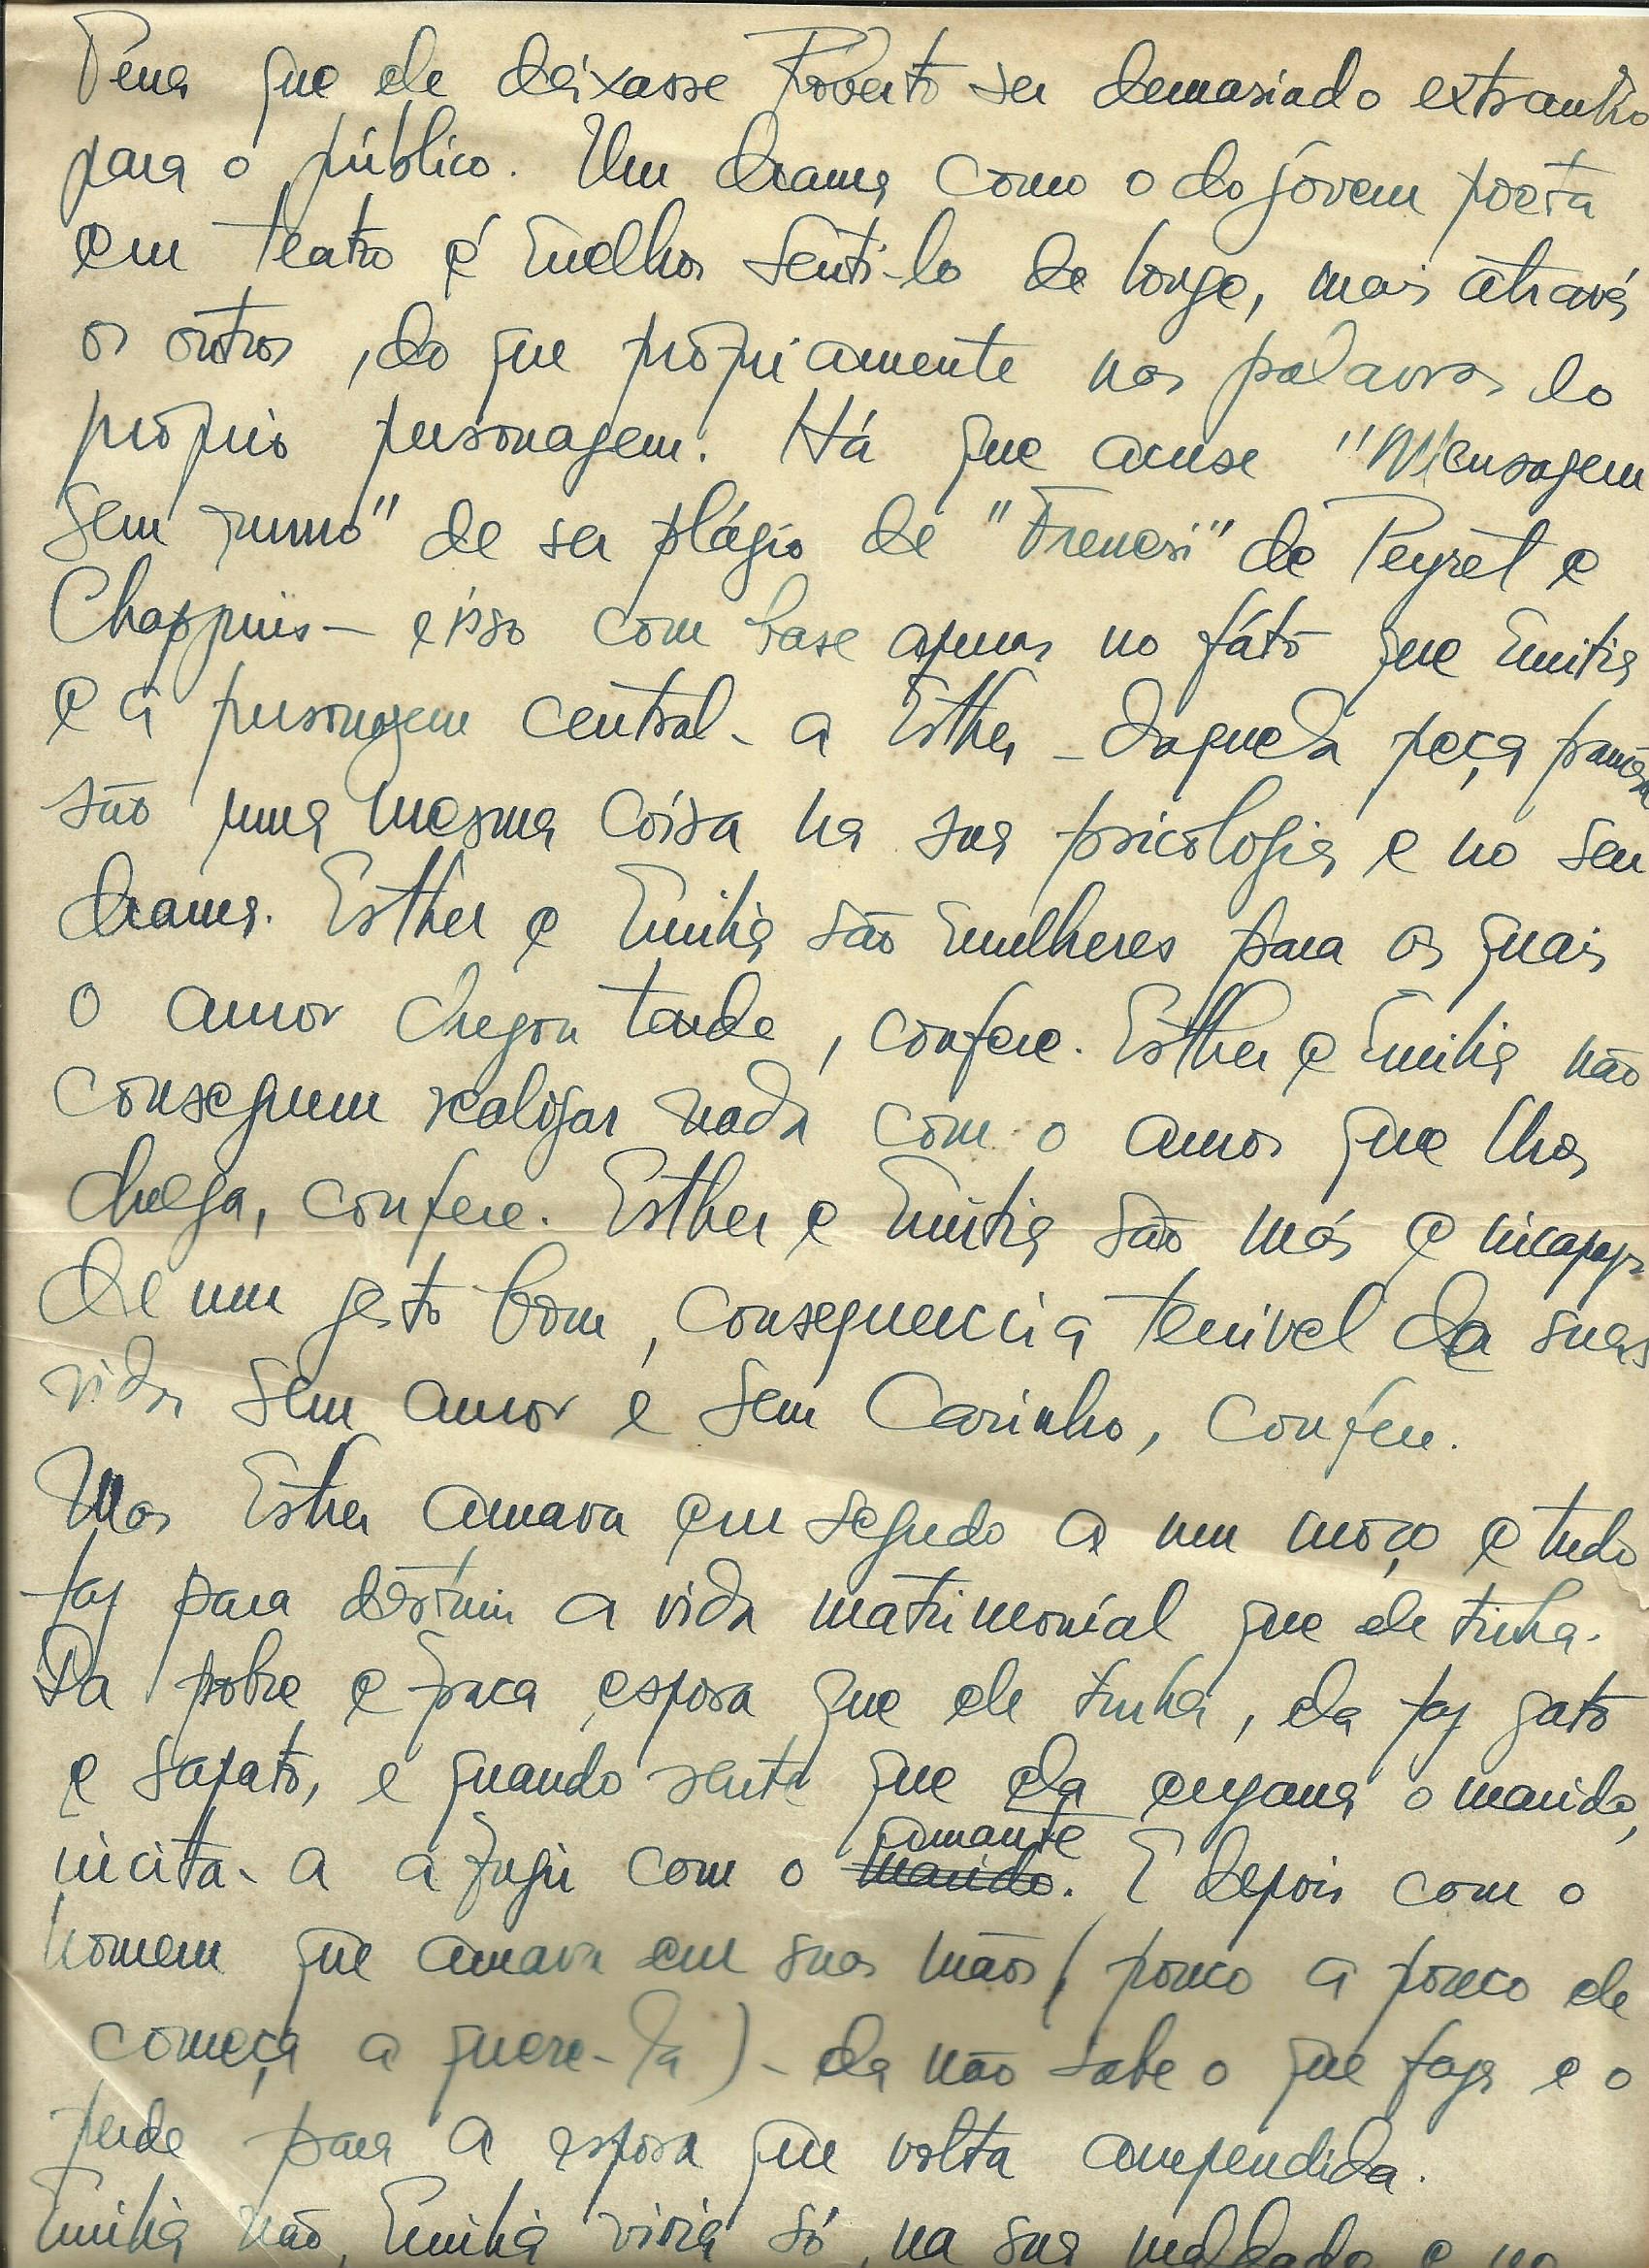 Pena que ele deixasse Roberto ser demasiado extranho
para o público. Um drama como o do jóvem poeta
em teatro é melhor senti-lo de longe, mais através
os outros, do que própriamente nas palavras do
próprio personagem. Há que acuse "Mensagem
sem rumo" de ser plágio de "Frenesi" de Peyret e
Chappuis - e isso com base apenas no fáto que Emilia
e a personagem central - a Esther - daquela peça francesa
são uma mesma cóisa na sua psicologia e no seu
drama. Esther e Emilia são mulheres para as quais
o amor chegou tarde, confere. Esther e Emilia não
conseguem realizar nada com o amor que lhes
chega, confere. Esther e Emilia são más e incapazes
de um gesto bom, consequencia terrivel da suas
vidas sem amor e sem carinho, confere.
Mas Esther amava em segredo a um moço e tudo
faz para destruir a vida matrimonial que ele tinha.
Da pobre e fraca esposa que ele tinha, ela faz gato
e sapato, e quando sente que ela engana o marido,
incita-a a fugir com o marido amante. E depois com o
homem que amava em suas mãos (pouco a pouco ele
começa a quere-la) - ela não sabe o que faça e o
perde para a esposa que volta arrependida.
Emilia não, Emilia vivia só, na sua maldade e na